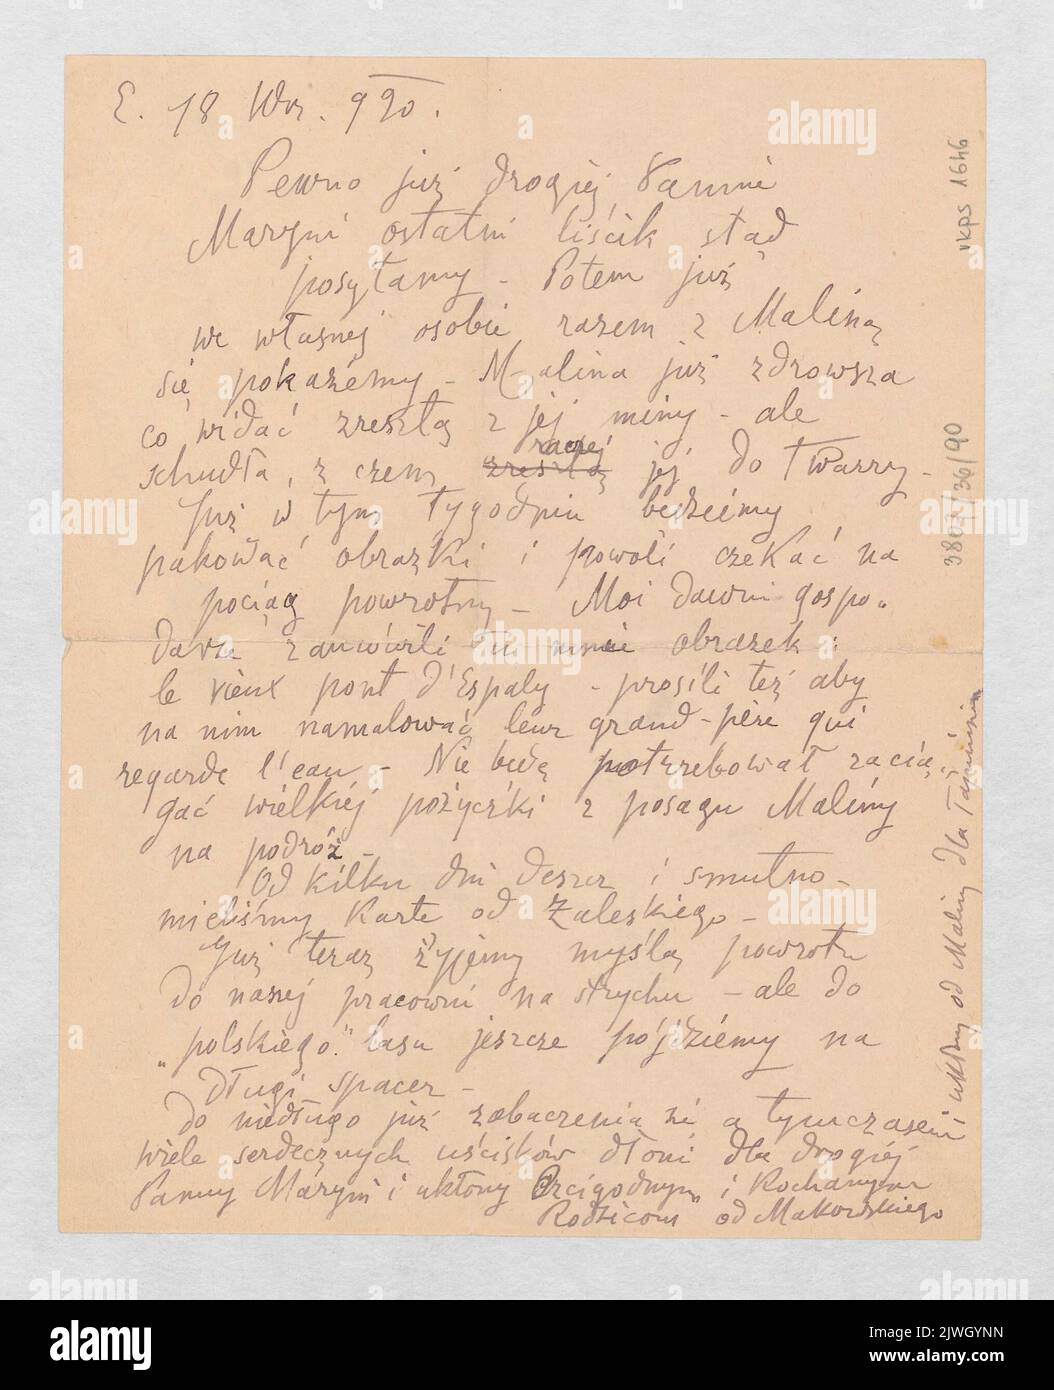 E. 18 Wrz. 920.
Pewno już drogiéj Pannie
Maryni ostatni liścik stąd
posyłamy - Potem już
we własnej osobie razem z Maliną
się pokażémy - Malina już zdrowsza
co widać zresztą z jej miny - ale
schudła, z czem raczej
zresztą jéj do twarzy -
Już w tym tygodniu będziémy
pakować obrazki i powoli czekać na
pociąg powrotny - Moi dawni gospo„
darze zamówili tu mnie obrazek:
le vieux pont d'Espaly - prosili też aby
na nim namalować leur grand-père qui
regarde l'eau - Nie będę potrzebował zacią„
gać wielkiéj pożyczki z posagu Maliny
na podróż -
Od kilku dni deszcz i smutno -
mieliśmy kartę od Zaleskiego -
Już teraz żyjemy myślą powrotu
do naszej pracowni na strychu - ale do
„polskiego" lasu jeszcze pójdziémy na
długi spacer -
Do niedługo już zobaczenia się a tymczasem
wiele serdecznych uścisków dłoni dla drogiéj
Panny Maryni i ukłony Czcigodnym i Kochanym
Rodzicom od Makowskiego
i ukłony od Maliny dla
3807/36/90
rkps 1646
alamy
a
Image ID: 2JWGYNN
www.alamy.com